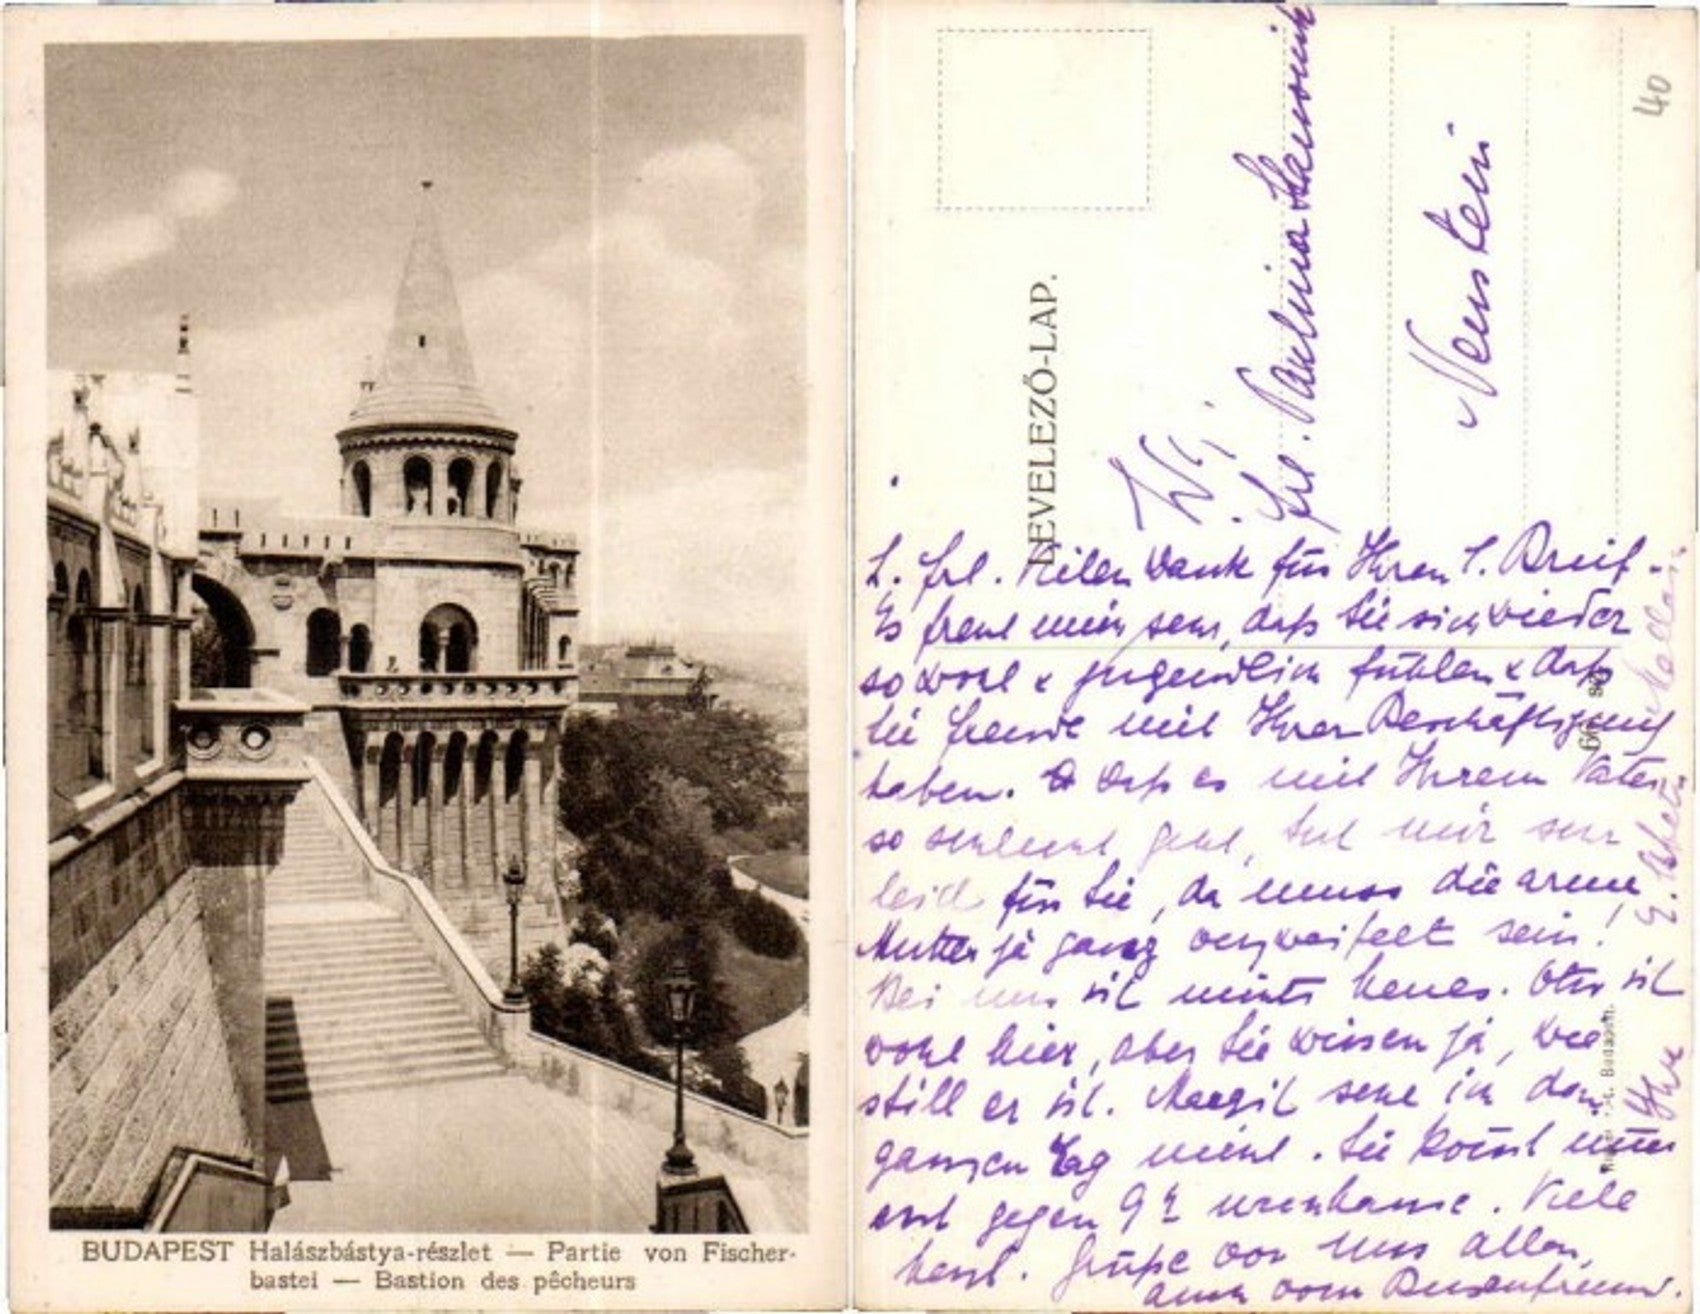 BUDAPEST Halászbástya-részlet — Partie von Fischer-
bastei — Bastion des pêcheurs
LEVELEZŐ-LAP.
40
Frl. Paulina
Neustein
L. Frl. Vielen Dank für Ihren l. Brief.
Es freut mich sehr, daß Sie sich wieder
so wohl & jugendlich fühlen & daß
Sie Freude mit Ihrer Beschäftigung
haben. Daß es mit Ihrem Vater
so schlecht geht, tut mir sehr
leid für Sie, da muss die arme
Mutter ja ganz verzweifelt sein!
Bei uns ist nichts Neues. Otto ist
wohl hier, aber Sie wissen ja, wie
still er ist. Margit sehe ich den
ganzen Tag nicht. Sie kommt immer
erst gegen 9h nachhause. Viele
herzl. Grüße von uns allen,
auch vom Busenfreund.
Ihre